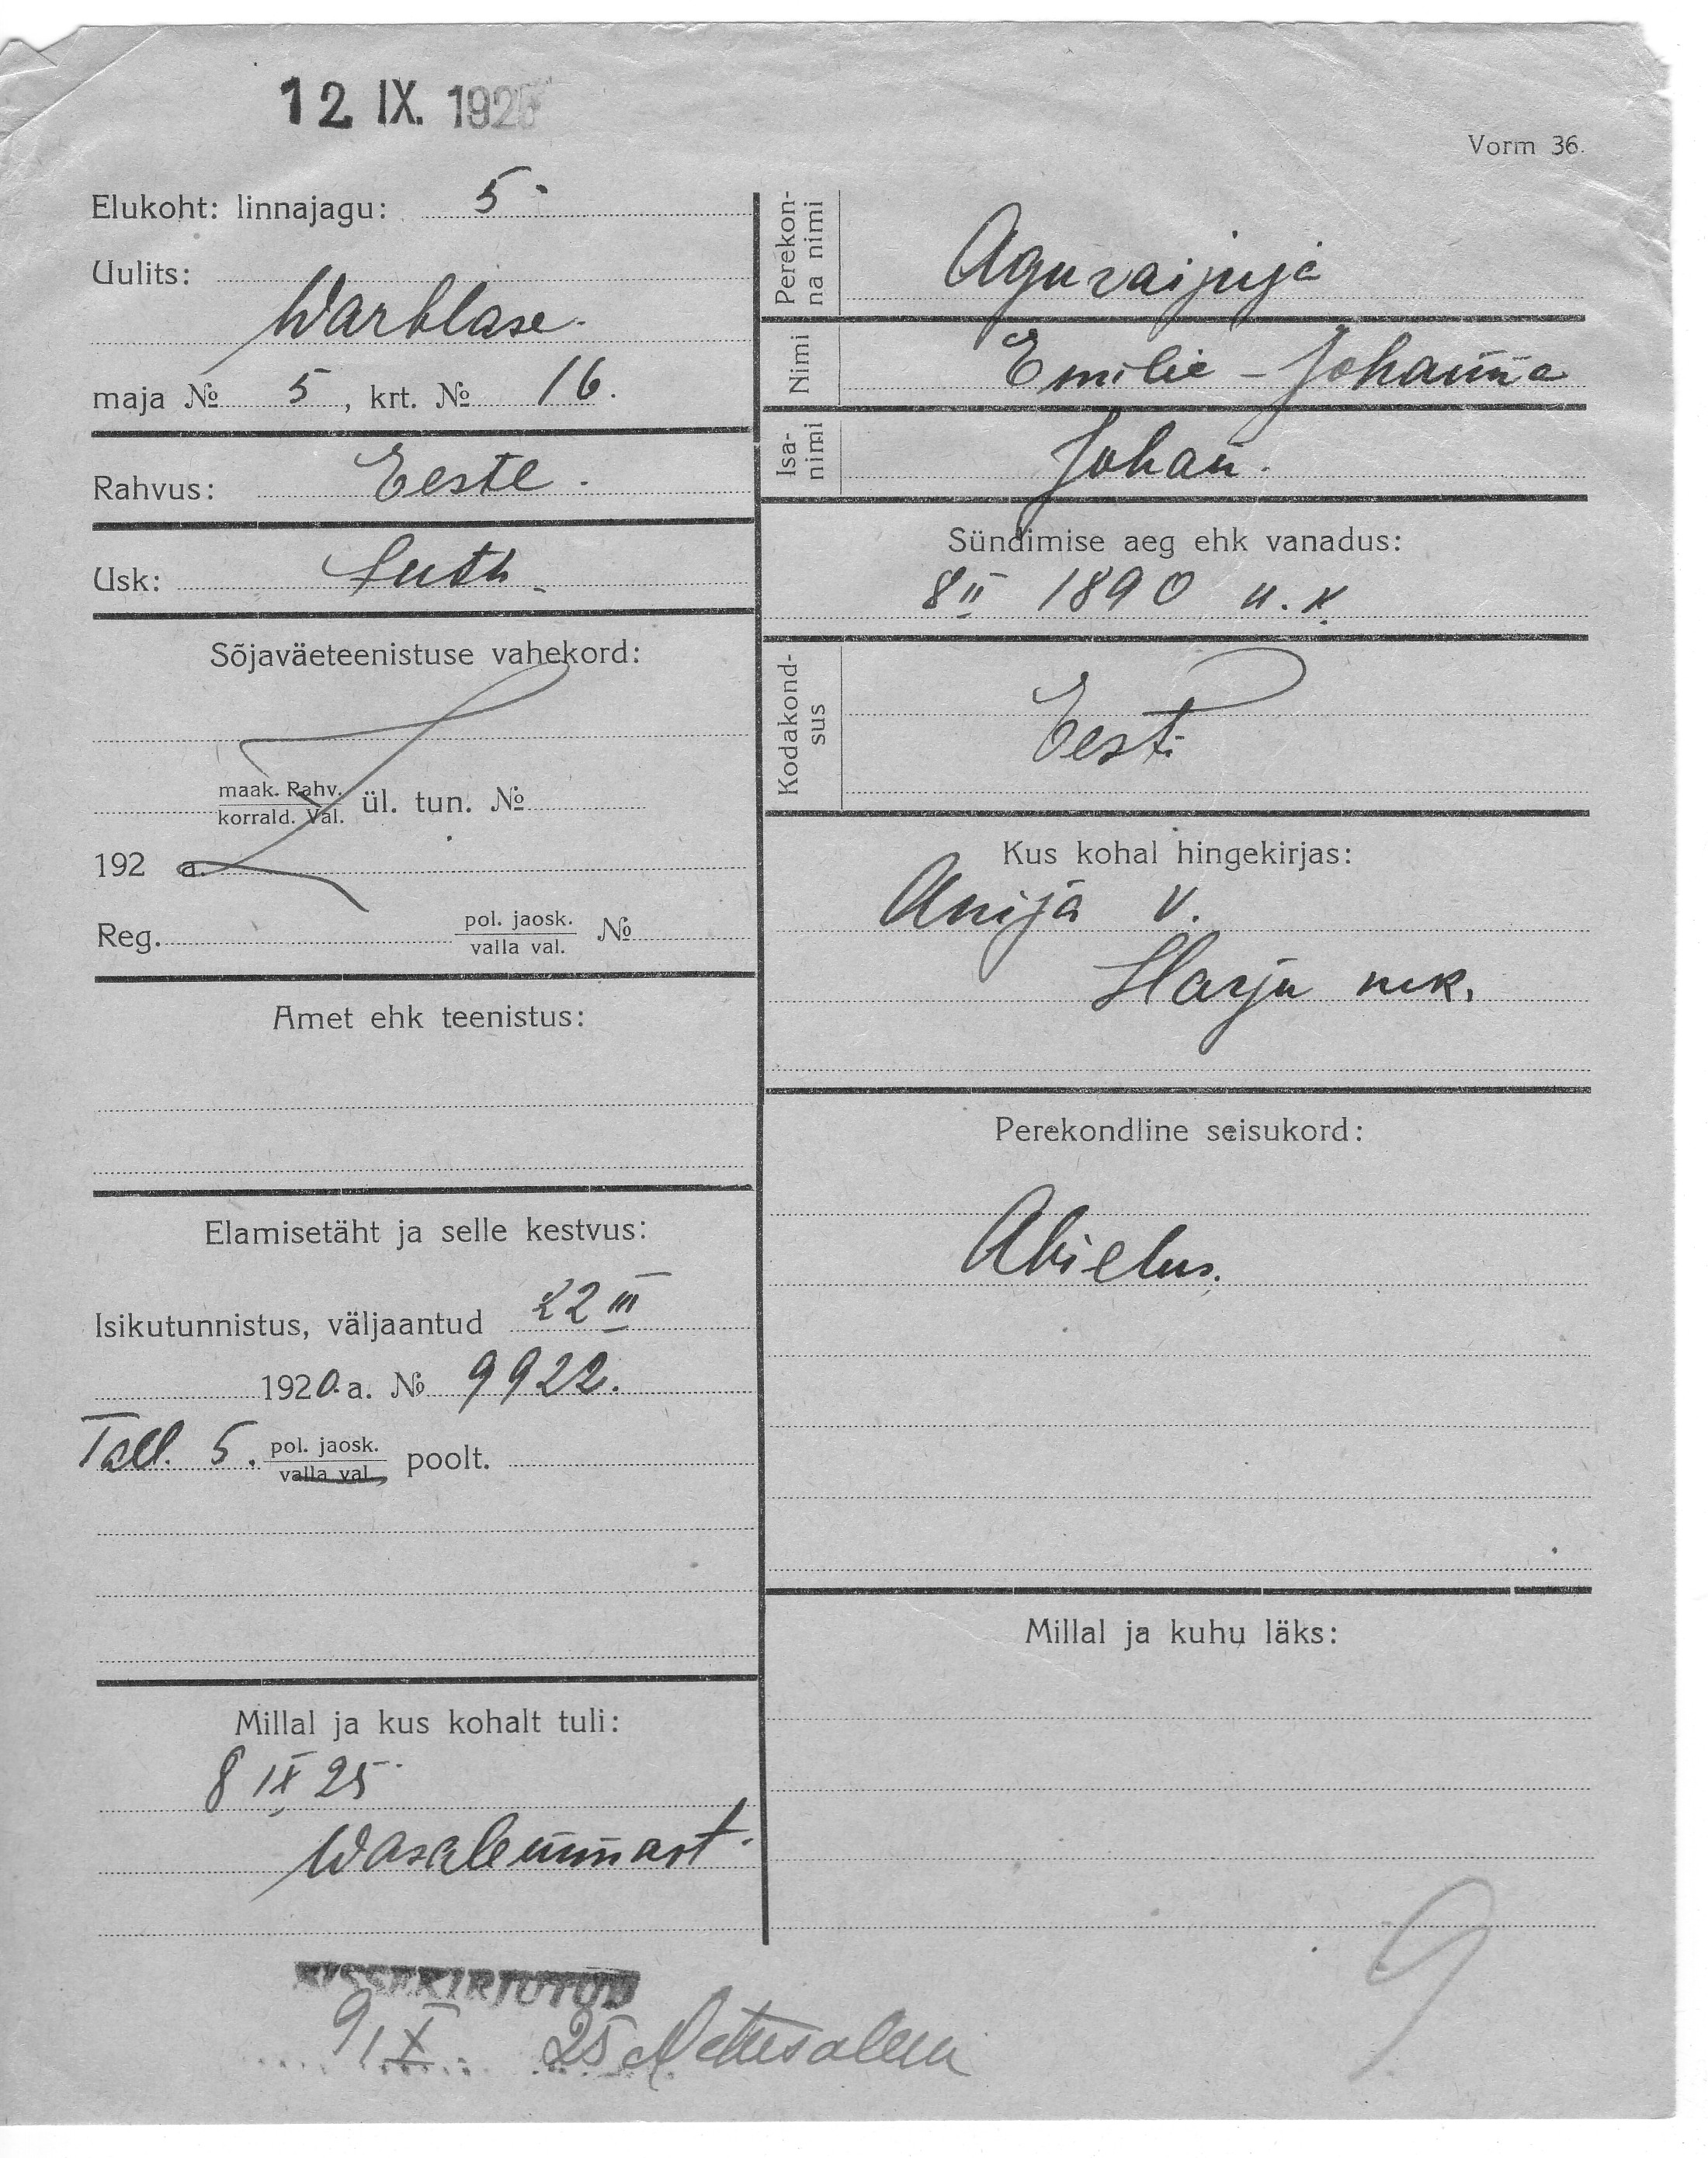 12. IX. 1925
Vorm 36.
Elukoht: linnajagu: 5
Uulits:
Warblase.
maja № 5, krt. № 16.
Rahvus: Eeste.
Usk: Luth.
Sõjaväeteenistuse vahekord:
maak. Rahv.
korrald. Val. ül. tun. №
192 a.
Reg. pol. jaosk.
valla val. №
Amet ehk teenistus:
Elamisetäht ja selle kestvus:
Isikutunnistus, väljaantud 22 III
1920. a. № 9922.
Tall. 5. pol. jaosk.
valla val. poolt.
Millal ja kus kohalt tuli:
8 IX 25
Wasalemmast.
Perekon-
na nimi
Nimi
Emilie - Johanna
Isa-
nimi
Johan.
Sündimise aeg ehk vanadus:
8 II 1890 u. k.
Kodakond-
sus
Eesti
Kus kohal hingekirjas:
Anija v.
Harju mk.
Perekondline seisukord:
Abielus.
Millal ja kuhu läks:
SISSEKIRJUTUD
9 IX 25
9